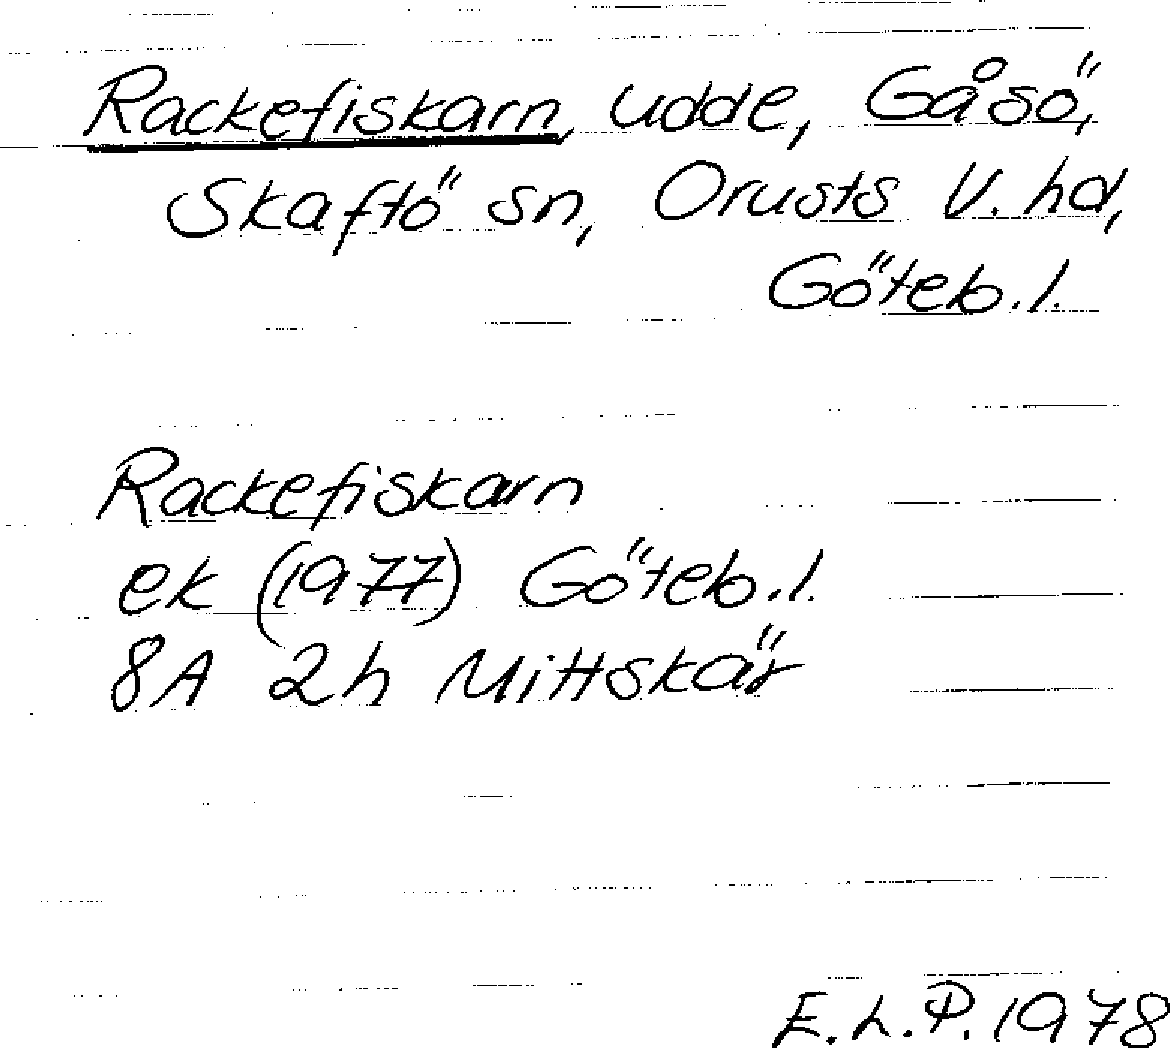 Rackefiskarn, udde, Gåsö,
Skaftö sn, Orusts V. hd,
Göteb.l.
Rackefiskarn
ek (1977) Göteb.l.
8A 2h Mittskär
E.L.P. 1978